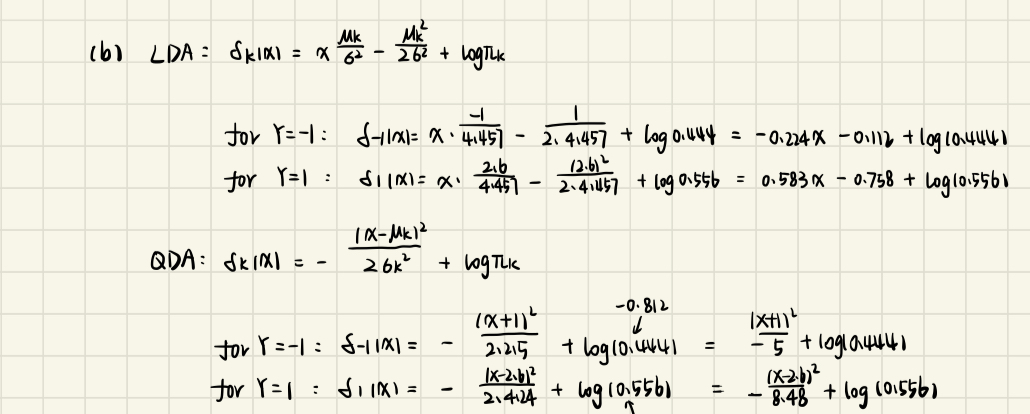 (b) LDA: δk(x) = x μk/σ² - μk²/2σ² + logπk
for Y=-1: δ-1(x) = x · -1/4.457 - 1/2·4.457 + log 0.444 = -0.224x - 0.112 + log(0.444)
for Y=1: δ1(x) = x · 2.6/4.457 - (2.6)²/2·4.457 + log 0.556 = 0.583x - 0.758 + log(0.556)
QDA: δk(x) = - (x-μk)²/2σk² + logπk
-0.812
for Y=-1: δ-1(x) = - (x+1)²/2·2.5 + log(0.444) = - (x+1)²/5 + log(0.444)
for Y=1: δ1(x) = - (x-2.6)²/2·4.24 + log(0.556) = - (x-2.6)²/8.48 + log(0.556)